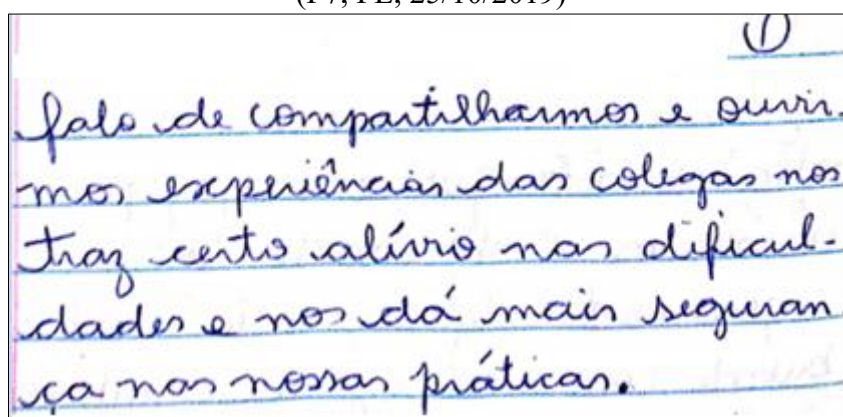 (P7, PE, 25/10/2019)
①
falo de compartilharmos e ouvir-
mos experiências das colegas nos
traz certo alívio nas dificul-
dades e nos dá mais seguran
ça nas nossas práticas.